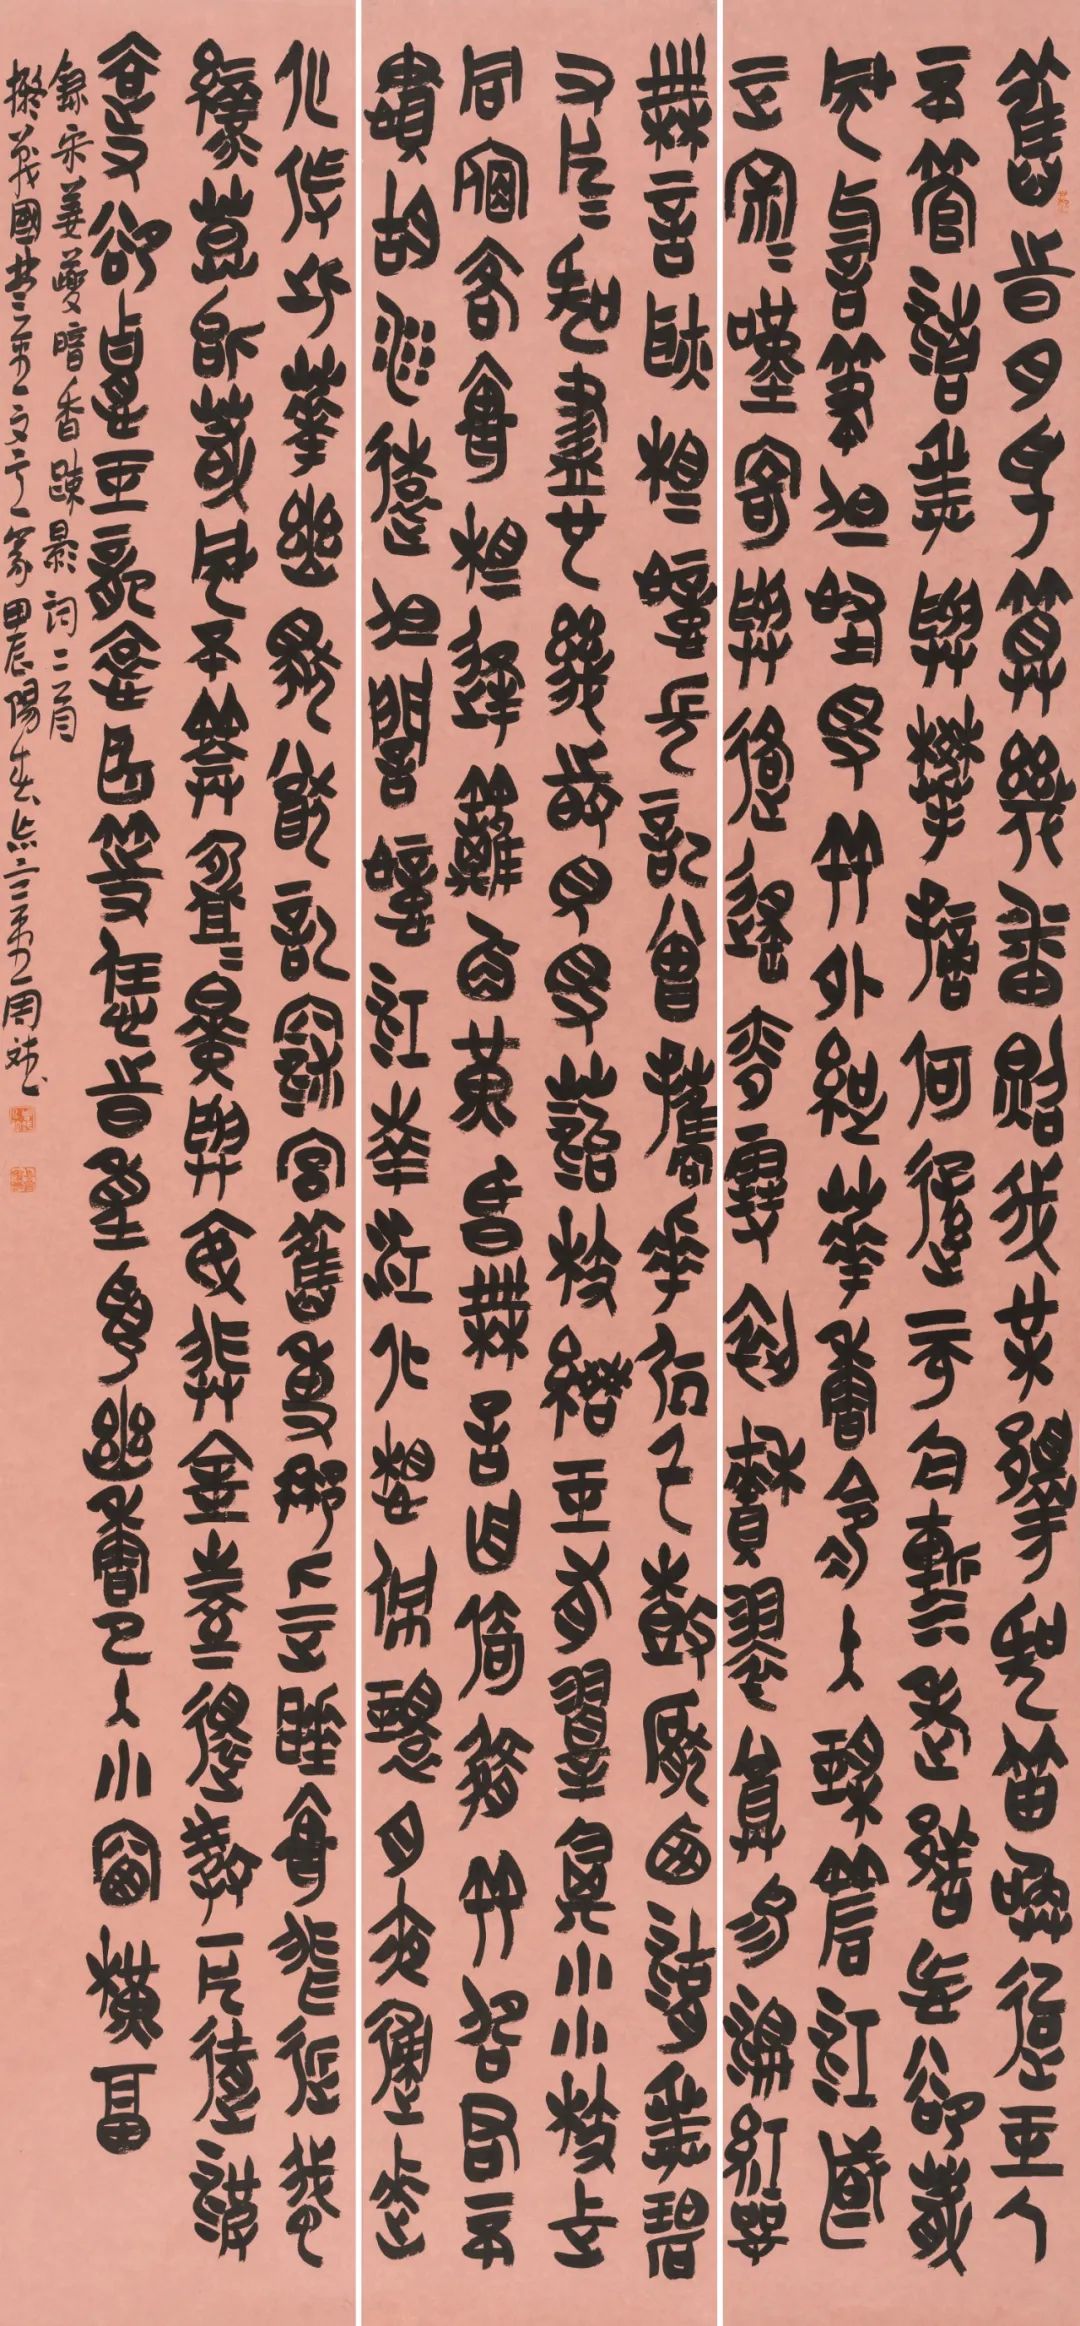 舊時月色算幾番照我某邊吹笛喚起玉人
不管清寒與攀摘何遜而今漸老都忘卻春
風詞筆但怪得竹外疏花香冷入瑤席江國
正寂寂嘆寄與路遙夜雪初積翠尊易泣紅萼
無言耿相憶長記曾攜手處千樹壓西湖寒碧
又片片吹盡也幾時見得苔枝綴玉有翠禽小小枝上
同宿客里相逢籬角黃昏無言自倚修竹昭君不
慣胡沙遠但暗憶江南江北想佩環月夜歸來
化作此花幽獨猶記深宮舊事那人正睡里飛近蛾
綠莫似春風不管盈盈早與安排金屋還教一片隨波
去又卻怨玉龍哀曲等恁時重覓幽香已入小窗橫幅
錄宋姜夔暗香疎影詞二首
擬戰國楚文篆甲辰陽春周斌